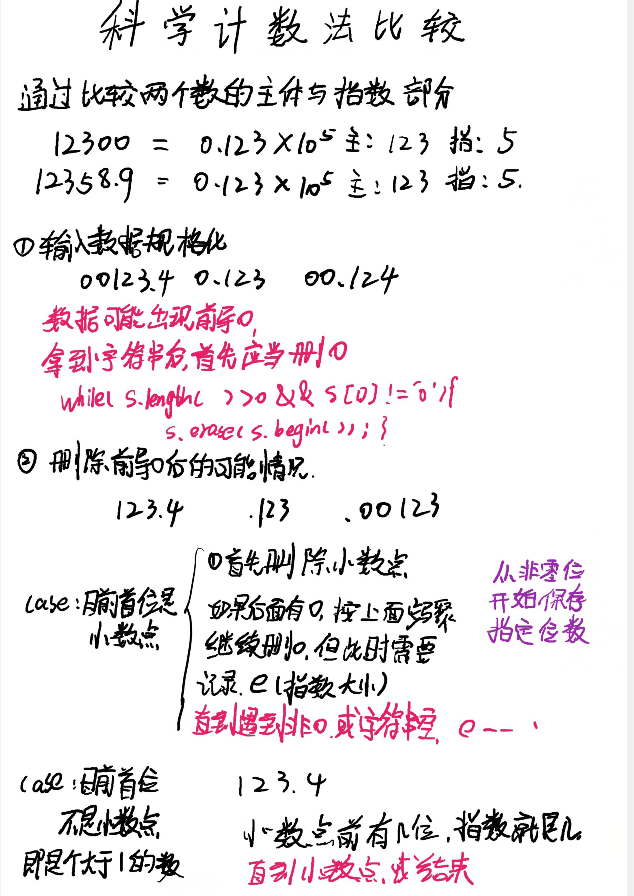 科学计数法比较
通过比较两个数的主体与指数部分
12300 = 0.123×10⁵ 主: 123 指: 5
12358.9 = 0.123×10⁵ 主: 123 指: 5.
①输入数据规格化
00123.4 0.123 00.124
数据可能出现前导0,
拿到字符串后,首先应当删0
while( s.length( )>0 && s[0]!='0'){
s.erase(s.begin()); }
② 删除前导0后的可能情况.
123.4 .123 .00123
case:目前首位是
小数点
①首先删除小数点
如果后面有0,按上面步骤
继续删0,但此时需要
记录e(指数大小)
直到遇到非0或字符串空, e--
从非零位
开始保存
指定位数
case:目前首位
不是小数点
即是个大于1的数
123.4
小数点前有几位,指数就是几
直到小数点,或结束